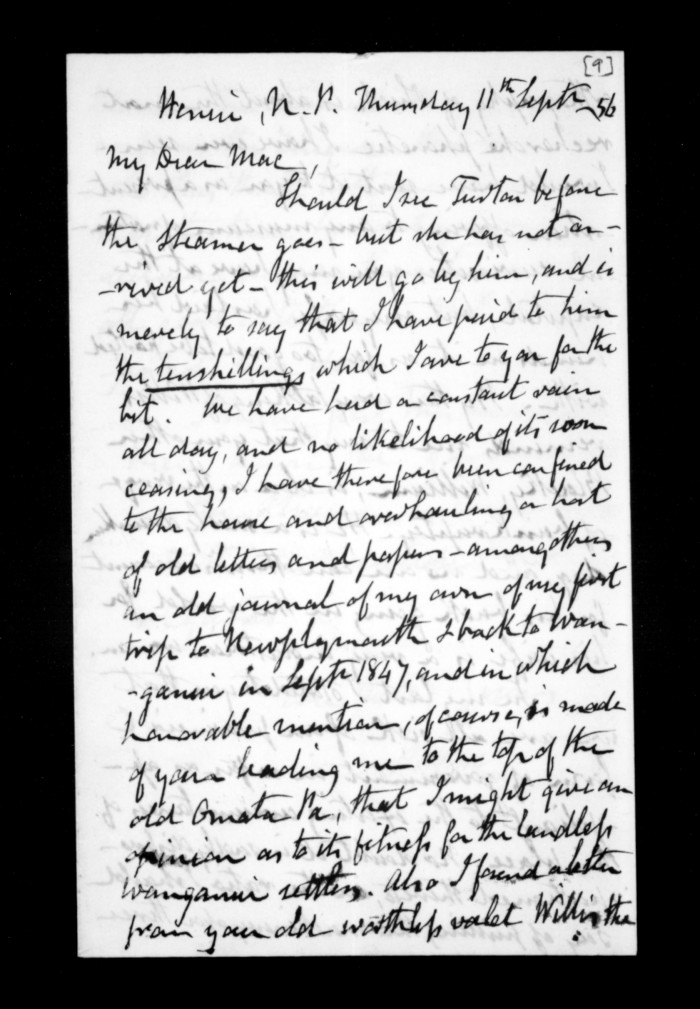 [9]
Henui, N.P. Thursday 11th Septr 56
My Dear Mac,
Should I see Turton before
the Steamer goes - but she has not ar-
-rived yet - this will go by him, and is
merely to say that I have paid to him
the tenshillings which I owe to you for the
bit. We have had a constant rain
all day, and no likelihood of its soon
ceasing, I have therefore been confined
to the house and overhauling a host
of old letters and papers - among others
an old journal of my own of my first
trip to Newplymouth & back to Wan-
-ganui in Septr 1847, and in which
honorable mention, of course, is made
of your leading me to the top of the
old Omata Pa, that I might give an
opinion as to its fitness for the landless
Wanganui settlers. Also I found a letter
from your old worthless valet Willis the